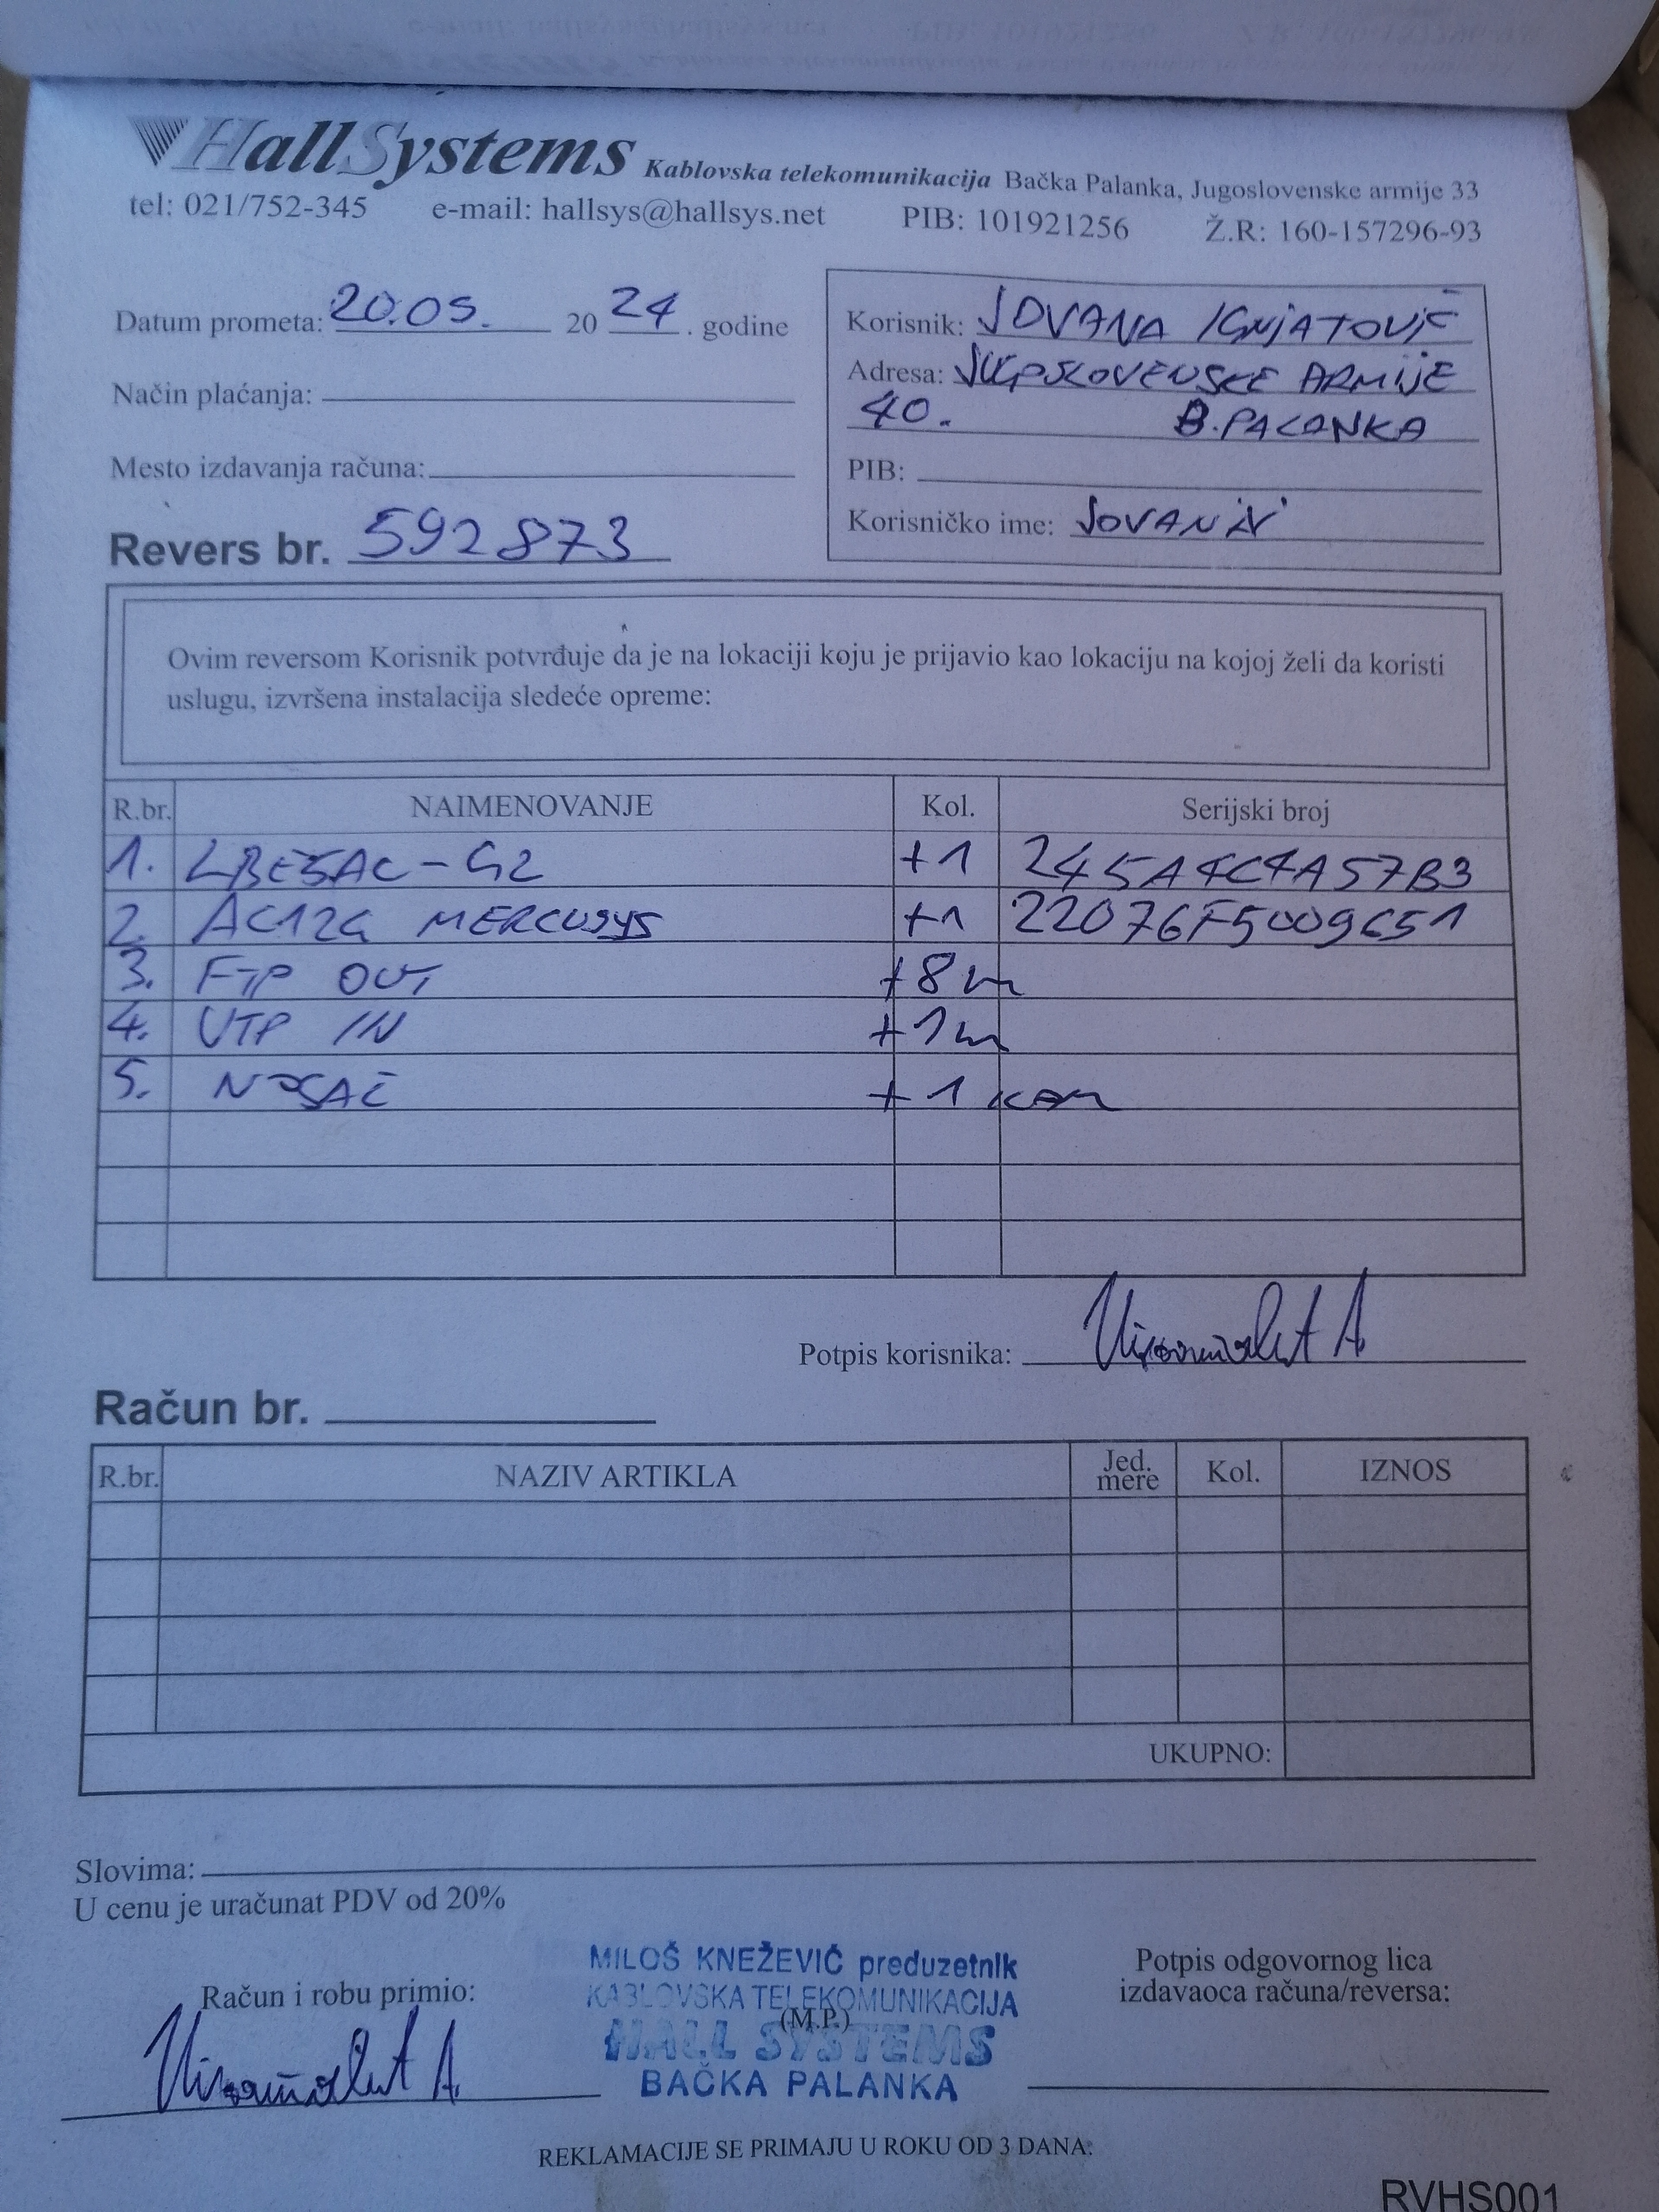 HallSystems Kablovska telekomunikacija Bačka Palanka, Jugoslovenske armije 33
tel: 021/752-345 e-mail: hallsys@hallsys.net PIB: 101921256 Ž.R: 160-157296-93
Datum prometa: 20.05. 20 24 . godine
Korisnik: JOVANA IGNJATOVIĆ
Način plaćanja:
Adresa: JUGOSLOVENSKE ARMIJE
40. B.PALANKA
Mesto izdavanja računa:
PIB:
Revers br. 592873
Korisničko ime:
Ovim reversom Korisnik potvrđuje da je na lokaciji koju je prijavio kao lokaciju na kojoj želi da koristi
uslugu, izvršena instalacija sledeće opreme:
R.br. NAIMENOVANJE Kol. Serijski broj
1. LBE5AC-G2 +1 245A4C4A57B3
2. AC12G MERCUSYS +1 22076F5009651
3. FTP OUT +8m
4. UTP IN +1m
5. NOSAČ +1 KOM
Potpis korisnika:
Račun br.
R.br. NAZIV ARTIKLA Jed. mere Kol. IZNOS
UKUPNO:
Slovima:
U cenu je uračunat PDV od 20%
MILOŠ KNEŽEVIĆ preduzetnik
KABLOVSKA TELEKOMUNIKACIJA
(M.P.)
HALL SYSTEMS
BAČKA PALANKA
Račun i robu primio:
Potpis odgovornog lica
izdavaoca računa/reversa:
REKLAMACIJE SE PRIMAJU U ROKU OD 3 DANA.
RVHS001